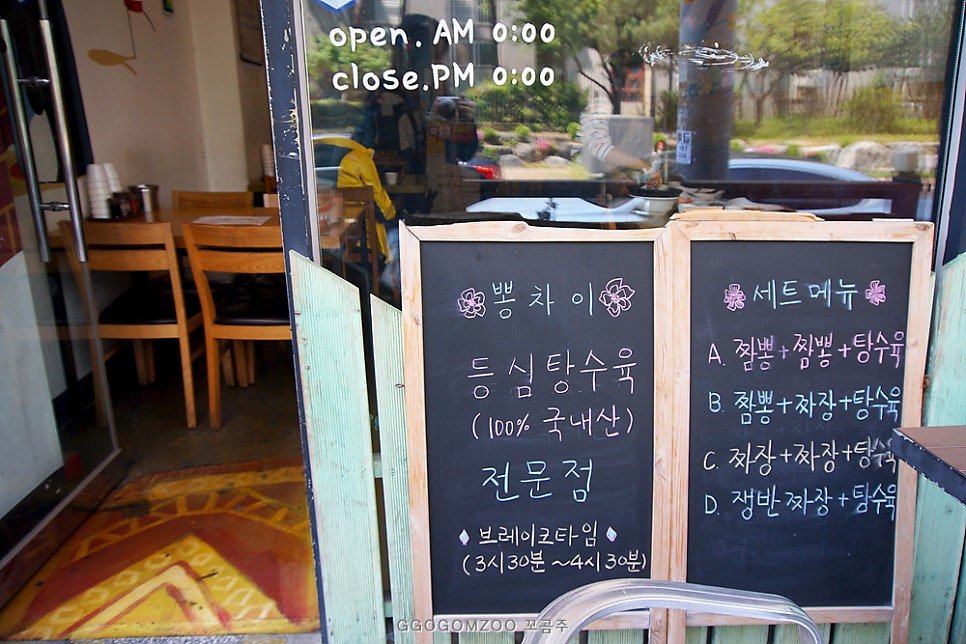 open. AM 0:00
close. PM 0:00
뽕차이
등심탕수육
(100% 국내산)
전문점
보레이크타임
(3시30분~4시30분)
세트메뉴
A. 짬뽕+짬뽕+탕수육
B. 짬뽕+짜장+탕수육
C. 짜장+짜장+탕수육
D. 쟁반짜장+탕수육
GGOGOMZOO 꼬곰주